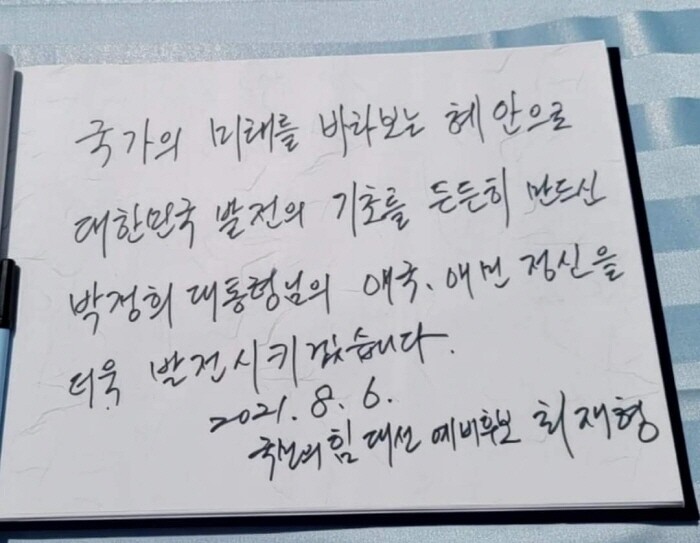 국가의 미래를 바라보는 혜안으로
대한민국 발전의 기초를 든든히 만드신
박정희 대통형님의 애국、애민 정신을
더욱 발전시키겠습니다.
2021. 8. 6.
국민의힘 대선 예비후보 최재형